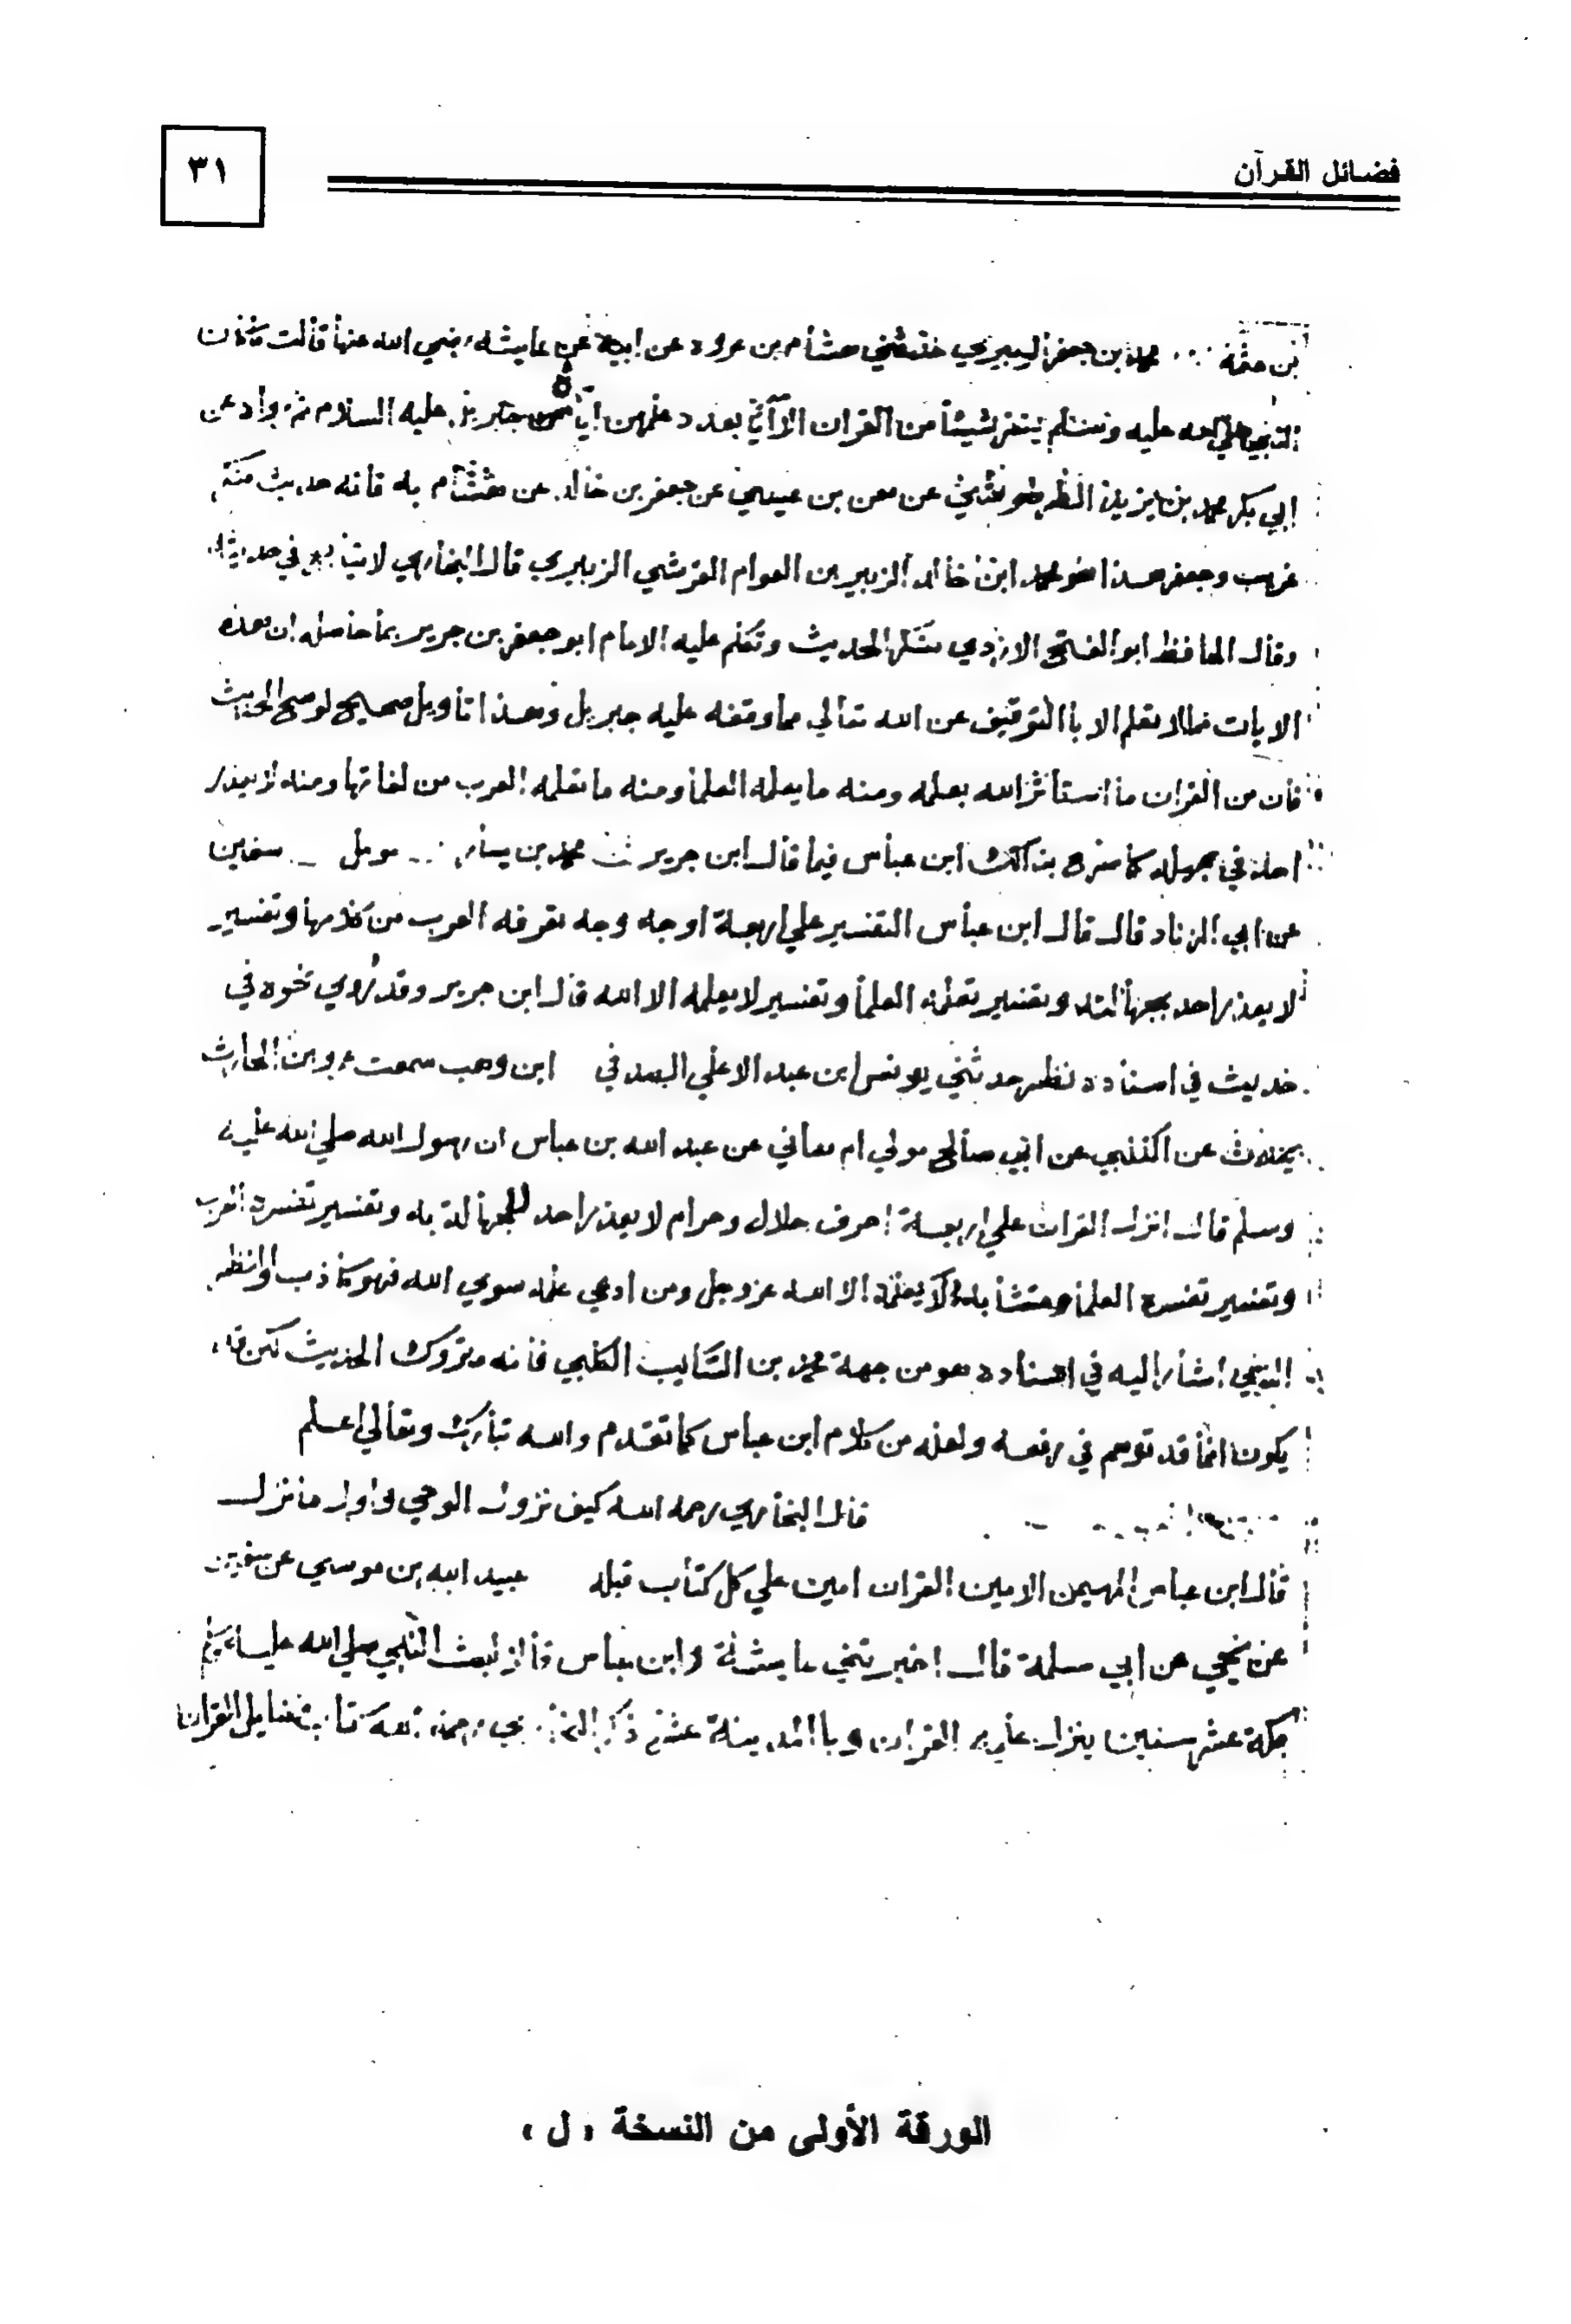 فضائل القرآن
٣١
بن عثمة محمد بن جعفر الزبيري حدثني هشام بن عروة عن ابيه عن عايشه رضي الله عنها قالت ما كان
النبي صلي الله عليه وسلم يفسر شيئا من القران الا آي بعدد علمهن اياه جبريل عليه السلام ثم رواه عن
ابي بكر محمد بن يزيد الطرطوسي عن معن بن عيسي عن جعفر بن خالد عن هشام به فانه حديث منكر
غريب وجعفر هذا هو محمد ابن خالد الزبير بن العوام القرشي الزبيري قال البخاري لا يتابع في حديثه
وقال الحافظ ابو الفتح الازدي منكر الحديث وتكلم عليه الامام ابو جعفر بن جرير بما حاصله ان هذه
الايات مما لا يعلم الا باالتوقيف عن الله تعالي مما وقفه عليه جبريل وهذا تأويل صحيح لو صح الحديث
فان من القران ما استأثر الله بعلمه ومنه ما يعلمه العلمأ ومنه ما تعلمه العرب من لغاتها ومنه لا يعذر
احد في جهله كما صرح بذالك ابن عباس فيما قال ابن جرير محمد بن بسار مومل سفين
عن ابي الزناد قال قال ابن عباس التفسير علي اربعة اوجه وجه تعرفه العرب من كلامها وتفسير
لا يعذر احد بجهالته وتفسير تعلمه العلمأ وتفسير لا يعلمه الا الله قال ابن جرير وقد روي نحوه في
حديث في اسناده نظر حدثني يونس ابن عبد الاعلي الصدفي ابن وهب سمعت عمرو بن الحارث
يحدث عن الكلبي عن ابي صالح مولي ام هاني عن عبد الله بن عباس ان رسول الله صلي الله عليه
وسلم قال انزل القران علي اربعة احرف حلال وحرام لا يعذر احد للجهالة به وتفسير تفسره العرب
وتفسير تفسره العلمأ ومتشابه لا يعلمه الا الله عز وجل ومن ادعي علمه سوي الله فهو كاذب والنظر
الذي اشار اليه في اسناده هو من جهة محمد بن السايب الكلبي فانه متروك الحديث لكن قد
يكون انما قد توهم في رفعه ولعله من كلام ابن عباس كما تقدم والله تبارك وتعالي اعلم
قال البخاري رحمه الله كيف نزول الوحي واول ما نزل
قال ابن عباس المهيمن الامين القران امين علي كل كتاب قبله عبيد الله بن موسي عن
عن يحيي عن ابي سلمة قال اخبرتني عايشة وابن عباس قالا لبث النبي صلي الله عليه وسلم
بمكة عشر سنين ينزل عليه القران وباالمدينة عشر ذكر البخاري رحمه الله كتاب فضايل القران
الورقة الأولى من النسخة « ل »